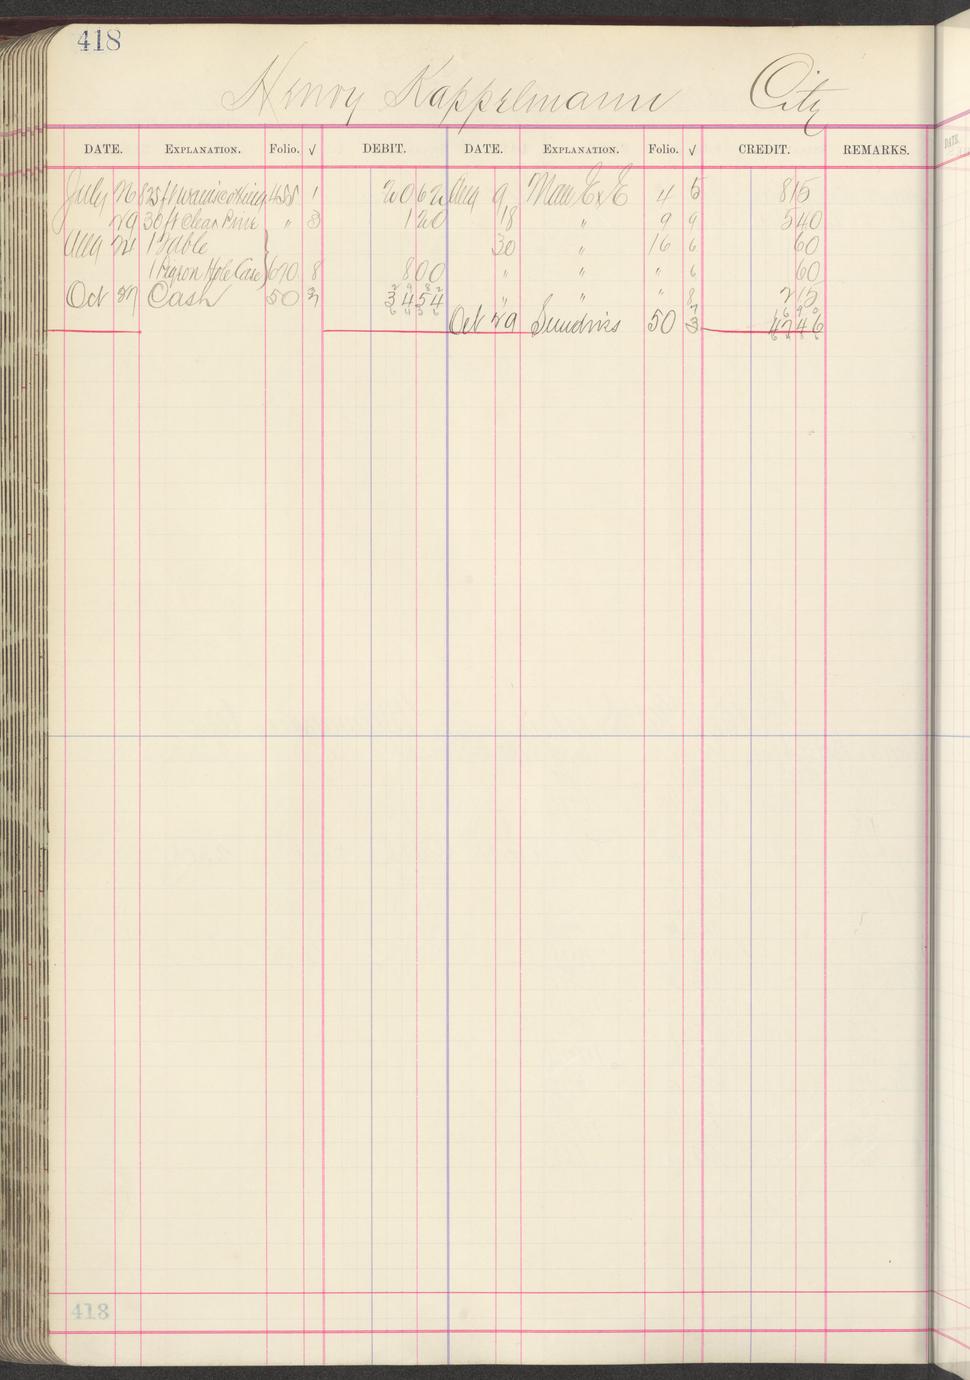 418
Henry Kappelmann City
DATE. EXPLANATION. Folio. √ DEBIT. DATE. EXPLANATION. Folio. √ CREDIT. REMARKS.
July 26 825 ft wainscoting 455 1 20 62 Aug 9 4 5 8 15
29 30 ft Clear Pine " 3 1 20 18 " 9 9 5 40
Aug 24 1 Table 30 " 16 6 60
1 Pigeon Hole Case 670 8 8 00 " " " 6 60
Oct 27 Cash 50 34 54 " " " 8 2 15
Oct 29 Sundries 50 42 46
418